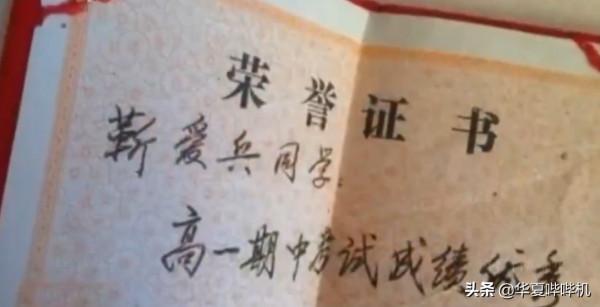 荣誉证书
靳爱兵同学
高一期中考试成绩优秀
头条 @华夏哔哔机